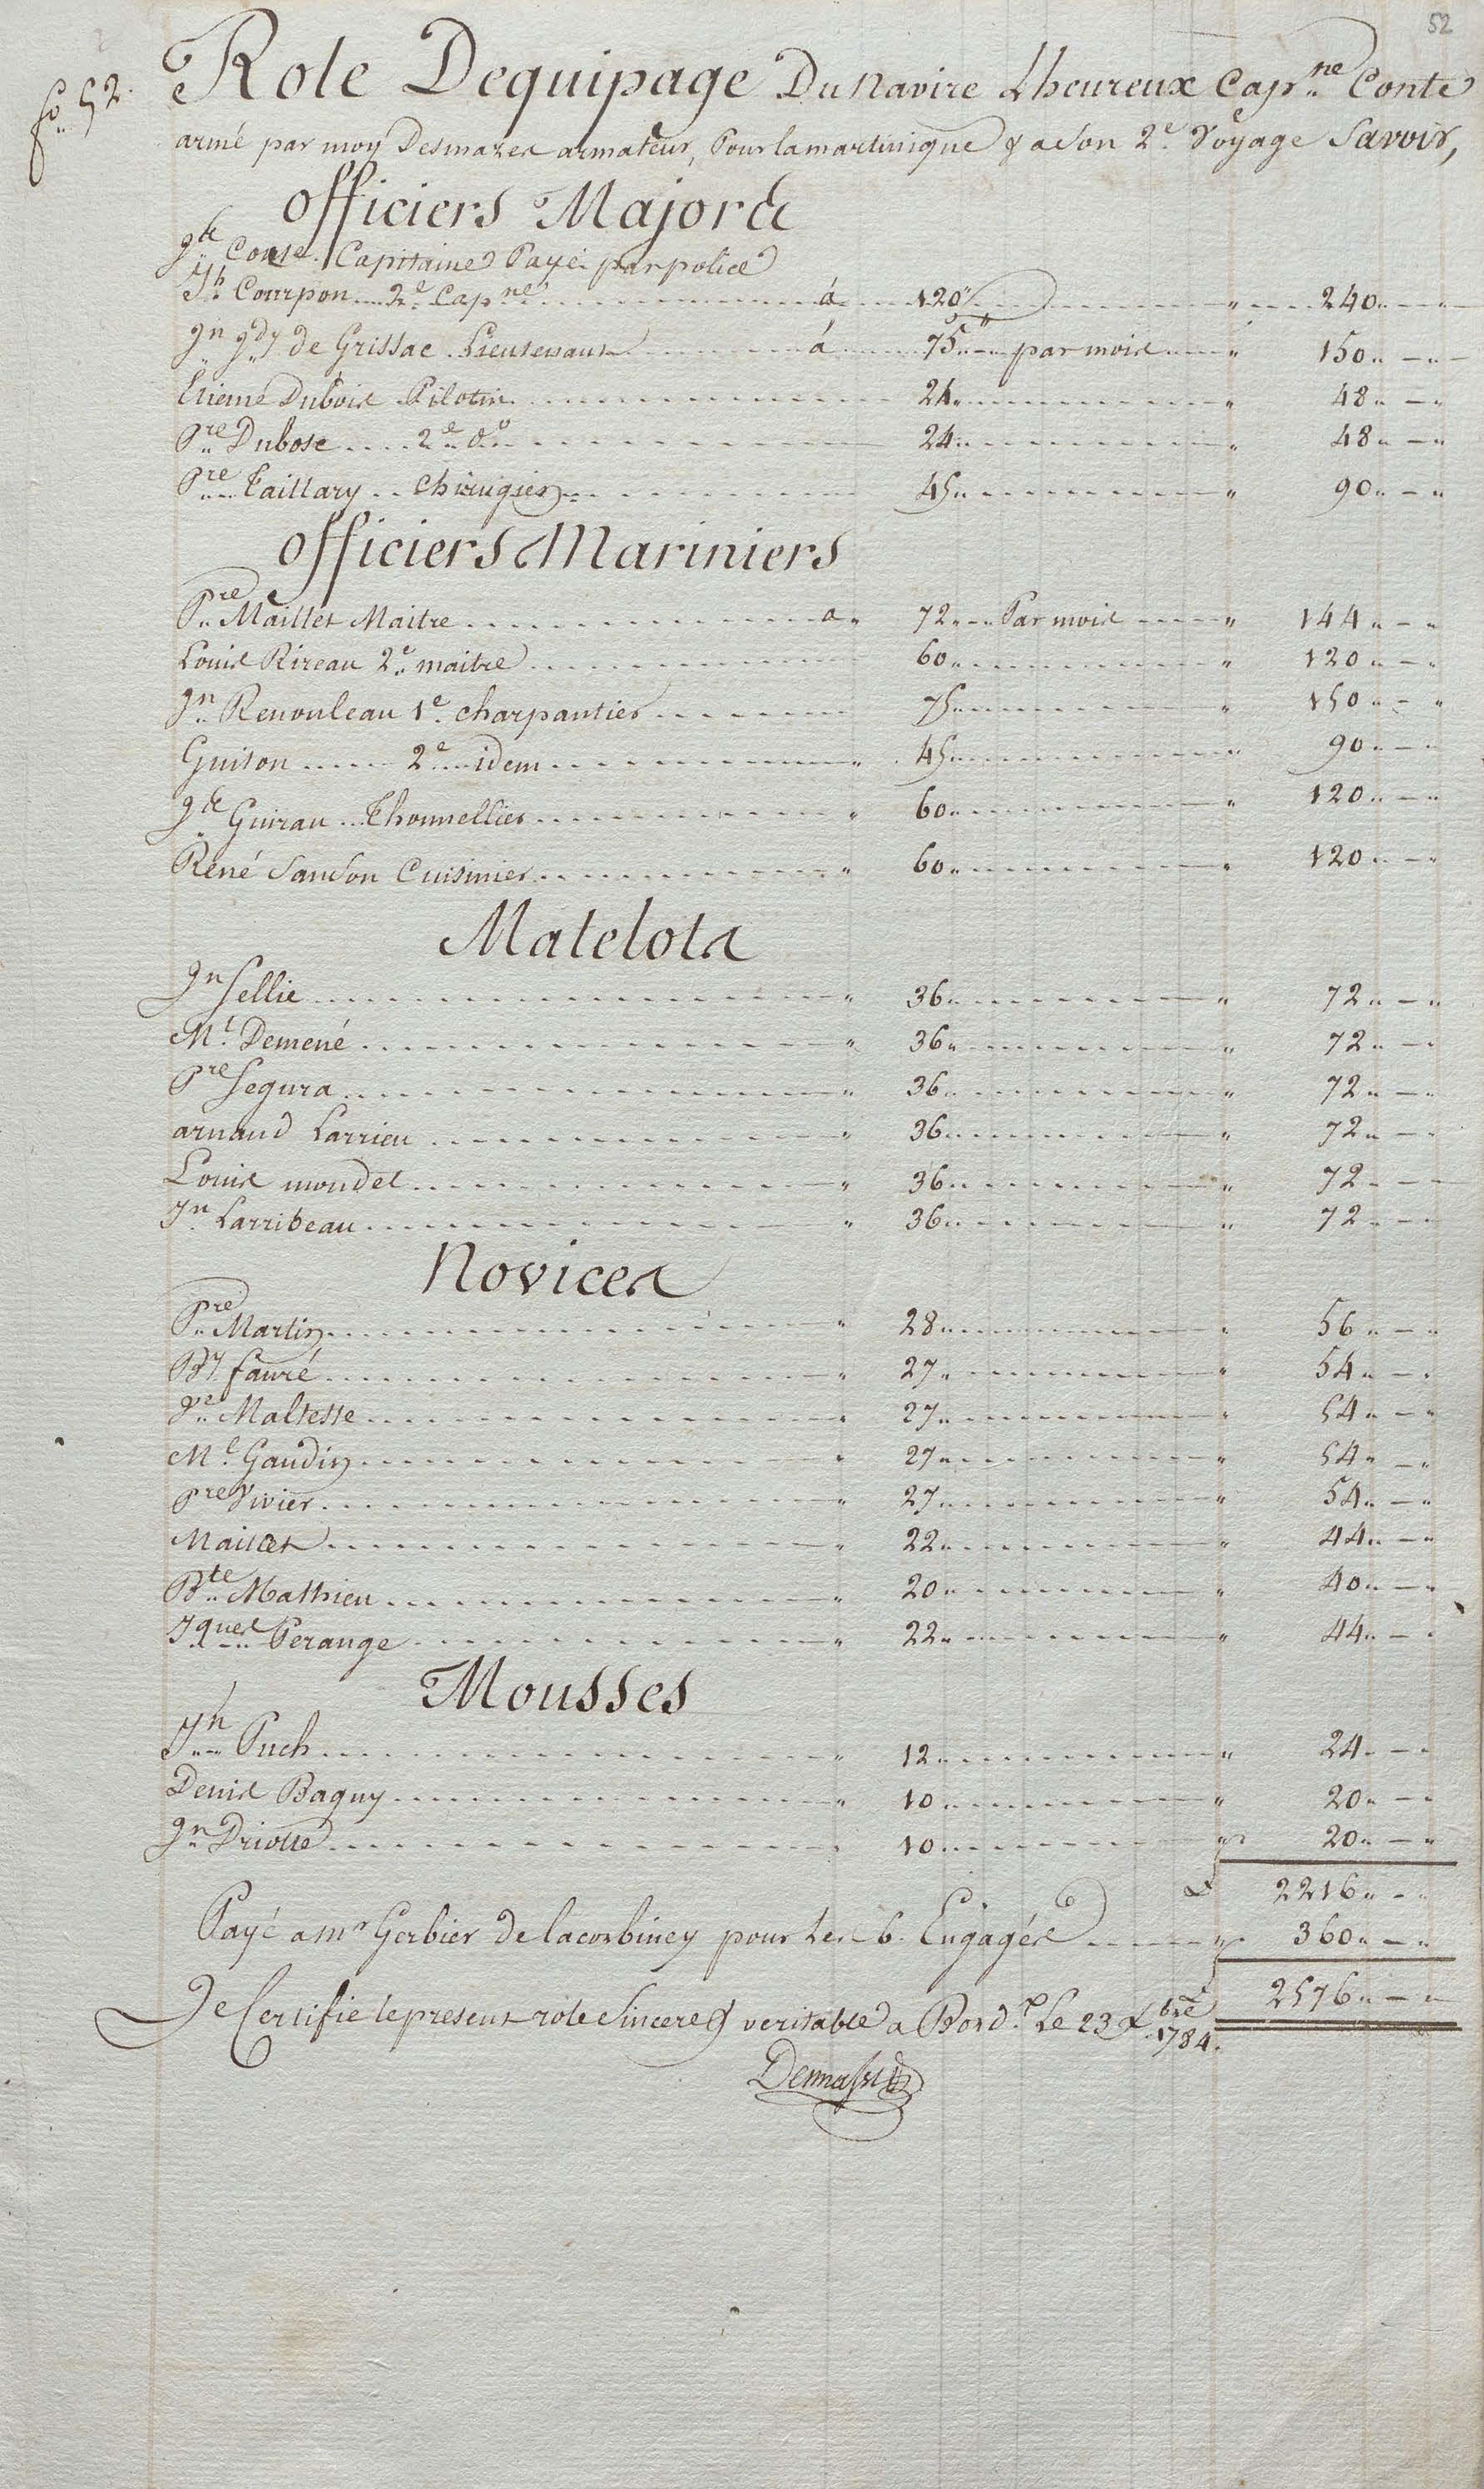 52
fo. 52.
Role Dequipage Du Navire Lheureux Capne Conte
armé par moy Desmazes armateur, Pour la martinique & a Son 2e. Voyage Savoir,
officiers Majors
Conte. Capitaine Payé par police
Jh Courpon .... 2e Capne .... á .... 120 .... " .... 240 .. — "
Jn de Grissac . Lieutenant .... á .... 75 .. — par mois .... " 150 .. — "
Etiene Dubois Pilotin .... 24 .... " 48 .. — "
Pre Dubosc .... 2e. do .... 24 .... " 48 .. — "
Pre Taillary .. Chirugien .... 45 .... " 90 .. — "
officiers Mariniers
Pre Maillet Maitre .... a .. 72 .... Par mois .... " 144 .. — "
Louis Rireau 2e. maitre .... 60 .... " 120 .. — "
Jn Renouleau 1e. charpantier .... 75 .... " 150 .. — "
Guiton .... 2e. idem .... " 45 .... " 90 .. — "
Guirau .. Thonnellier .... " 60 .... " 120 .. — "
René Sanson Cuisinier .... " 60 .... " 120 .. — "
Matelots
Jn Sellie .... " 36 .... " 72 .. — "
Ml. Demené .... " 36 .... " 72 .. — "
Pre Segura .... " 36 .... " 72 .. — "
arnaud Larrieu .... " 36 .... " 72 .. — "
Louis mondet .... " 36 .... " 72 .. — "
Jn Larribeau .... " 36 .... " 72 .. — "
Novices
Pre Martin .... " 28 .... " 56 .. — "
By fauré .... " 27 .... " 54 .. — "
Maltesse .... " 27 .... " 54 .. — "
Ml. Gaudin .... " 27 .... " 54 .. — "
Pre Vivier .... " 27 .... " 54 .. — "
Maillet .... " 22 .... " 44 .. — "
Bte Mathieu .... " 20 .... " 40 .. — "
Jques Perange .... " 22 .... " 44 .. — "
Mousses
Jn Puch .... " 12 .... " 24 .. — "
Denis Baguy .... " 10 .... " 20 .. — "
Jn Driotte .... " 10 .... " 20 .. — "
2216 .. — "
Payé a mr Gerbier De lacorbiney pour Les 6. Engagés .... " 360 .. — "
2576 .. — "
Je Certifie le present role Sincere & veritable a Bordx. Le 23 Xbre 1784.